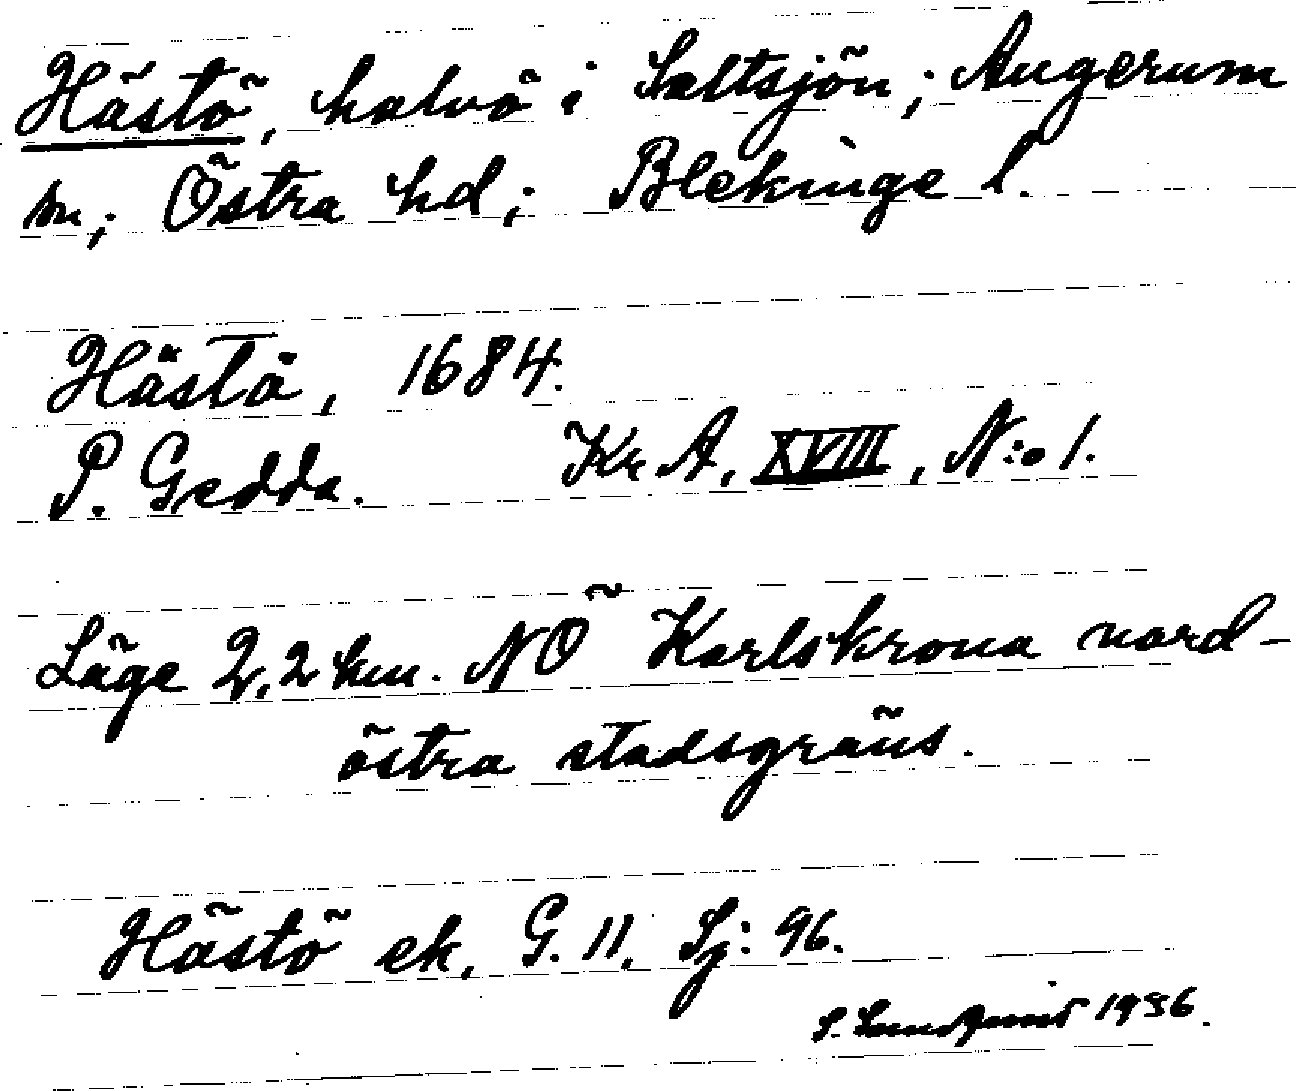 Hästö, halvö i Saltsjön; Augerum
sn; Östra hd; Blekinge l.
Hästö, 1684.
P. Gedda. Kr A, XVIII, N:o 1.
Läge 2,2 km. NÖ Karlskrona nord-
östra stadsgräns.
Hästö ek. G. 11. Sj: 96.
S. Sundquist 1956.